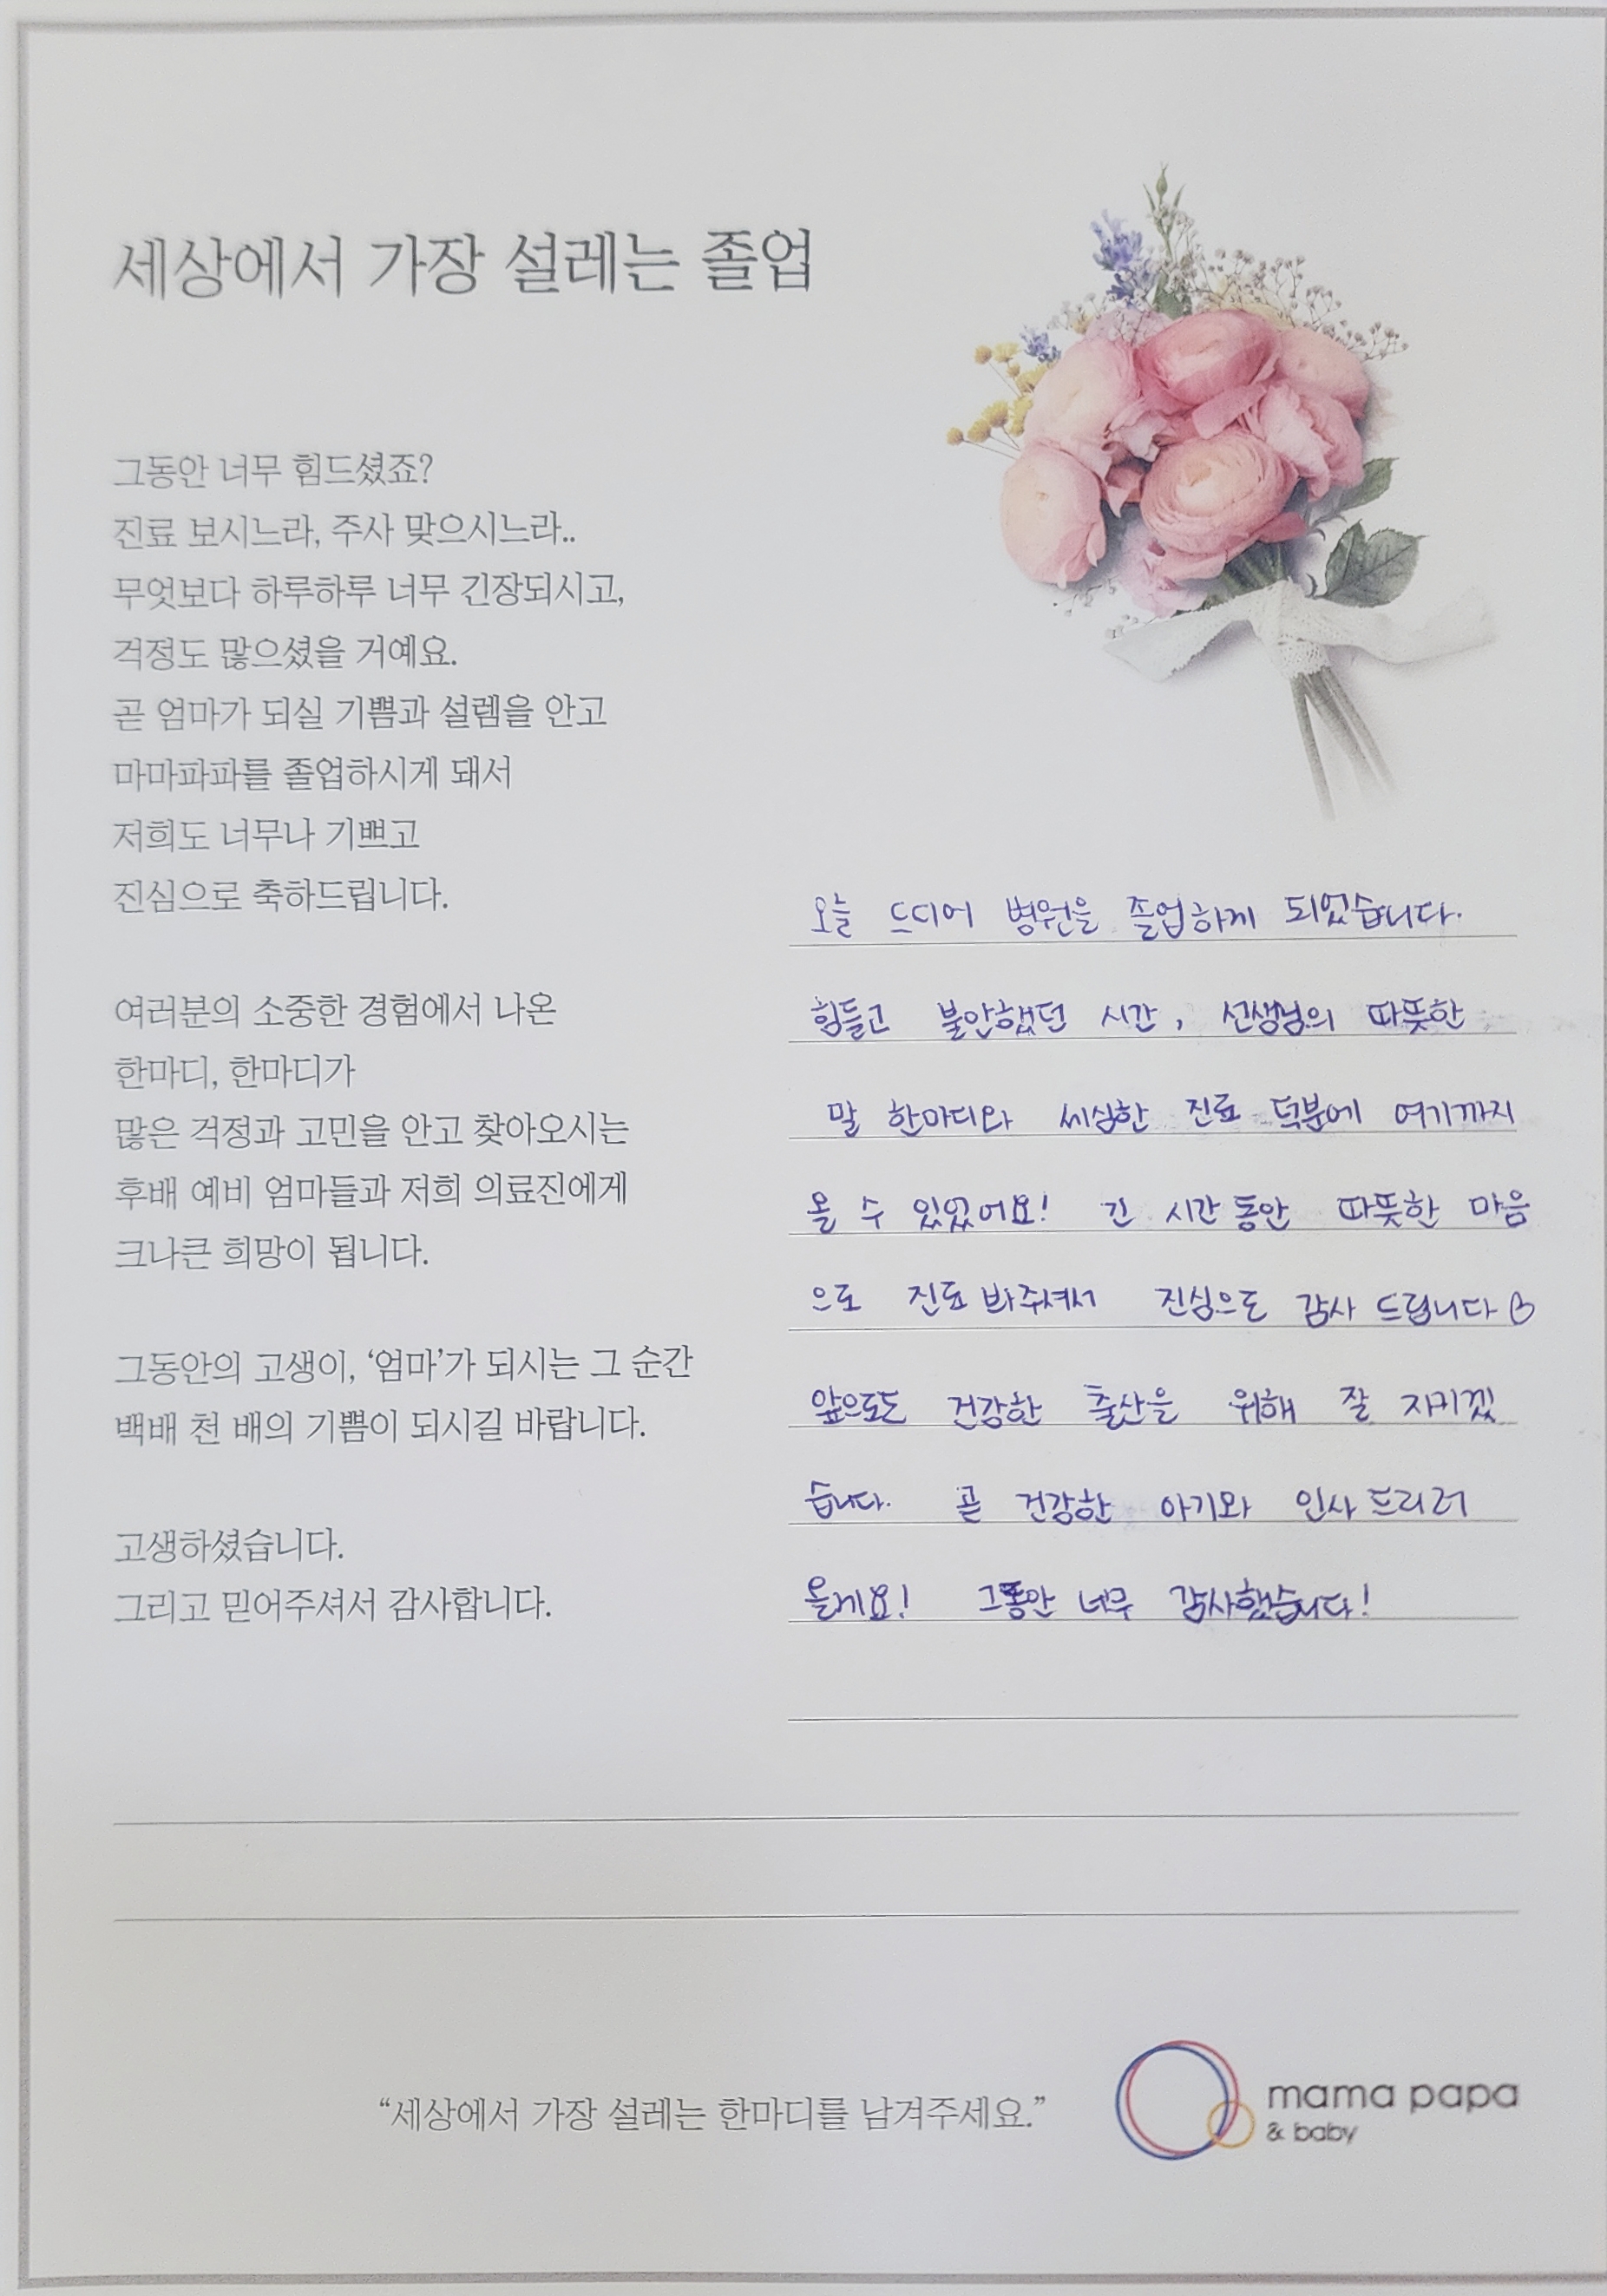 세상에서 가장 설레는 졸업
그동안 너무 힘드셨죠?
진료 보시느라, 주사 맞으시느라..
무엇보다 하루하루 너무 긴장되시고,
걱정도 많으셨을 거예요.
곧 엄마가 되실 기쁨과 설렘을 안고
마마파파를 졸업하시게 돼서
저희도 너무나 기쁘고
진심으로 축하드립니다.
여러분의 소중한 경험에서 나온
한마디, 한마디가
많은 걱정과 고민을 안고 찾아오시는
후배 예비 엄마들과 저희 의료진에게
크나큰 희망이 됩니다.
그동안의 고생이, ‘엄마’가 되시는 그 순간
백배 천 배의 기쁨이 되시길 바랍니다.
고생하셨습니다.
그리고 믿어주셔서 감사합니다.
오늘 드디어 병원을 졸업하게 되었습니다.
힘들고 불안했던 시간, 선생님의 따뜻한
말 한마디와 세심한 진료 덕분에 여기까지
올 수 있었어요! 긴 시간동안 따뜻한 마음
으로 진료봐주셔서 진심으로 감사 드립니다
앞으로도 건강한 출산을 위해 잘 지키겠
습니다. 곧 건강한 아기와 인사드리러
올게요! 그동안 너무 감사했습니다!
“세상에서 가장 설레는 한마디를 남겨주세요.”
mama papa
& baby